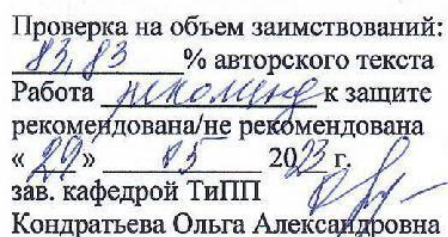 Проверка на объем заимствований:
83,83 % авторского текста
Работа рекоменд к защите
рекомендована/не рекомендована
« 29 » 05 2023 г.
зав. кафедрой ТиПП
Кондратьева Ольга Александровна